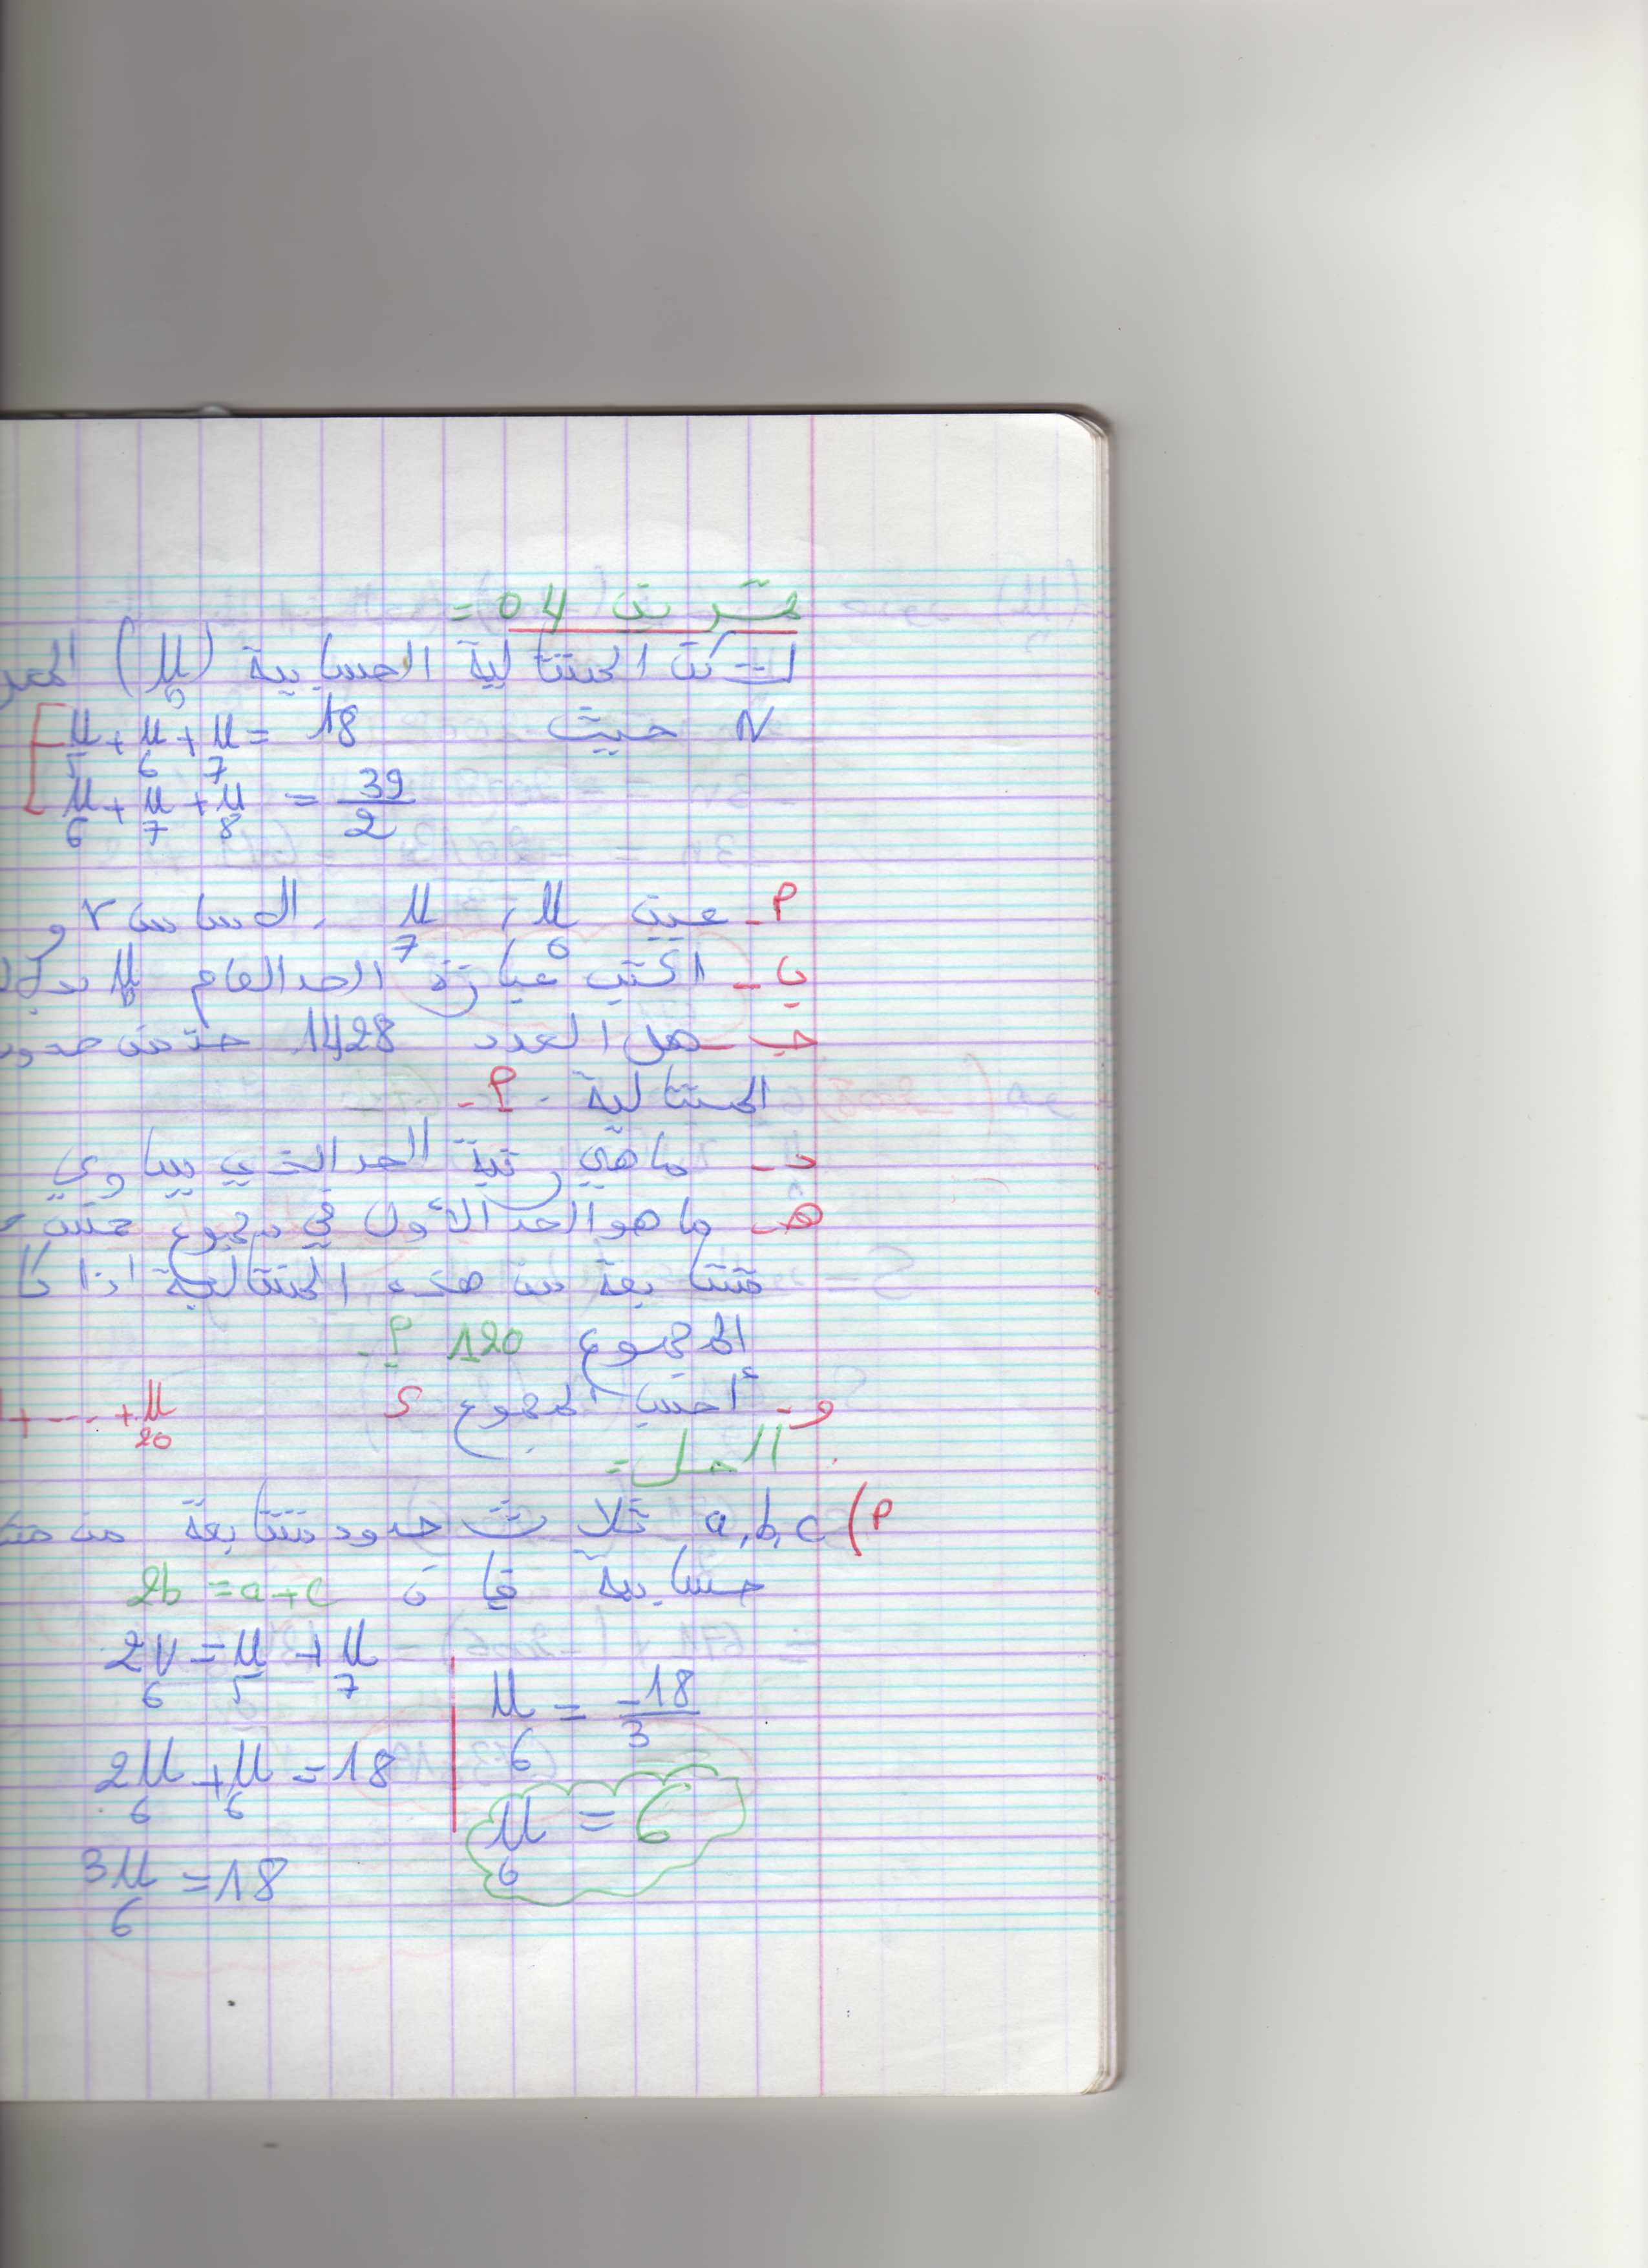 تمرين 04 =
لتكن المتتالية الحسابية (U n) المعر
N حيث U5 + U6 + U7 = 18
U6 + U7 + U8 = 39/2
أ- عين U6 ، U7 ، الاساس r و
ب- اكتب عبارة الحد العام U n بدلا
ج- هل العدد 1428 حد من حدود
المتتالية ؟-
د- ماهي رتبة الحد الذي يساوي
هـ- ما هو الحد الأول في مجموع خمس
متتابعة من هذه المتتالية اذا كا
المجموع 120 ؟-
و- أحسب المجموع S + ---- + U20
الحل =
أ) a, b, c ثلاث حدود متتابعة من متتا
حسابية فان 2b = a+c
2U6 = U5 + U7
2U6 + U6 = 18
3U6 = 18
U6 = 18/3
U6 = 6